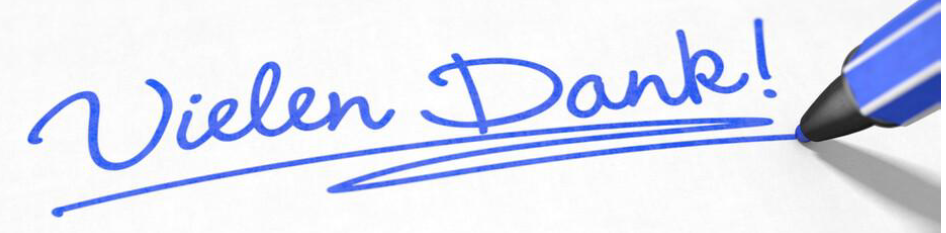 Vielen Dank!